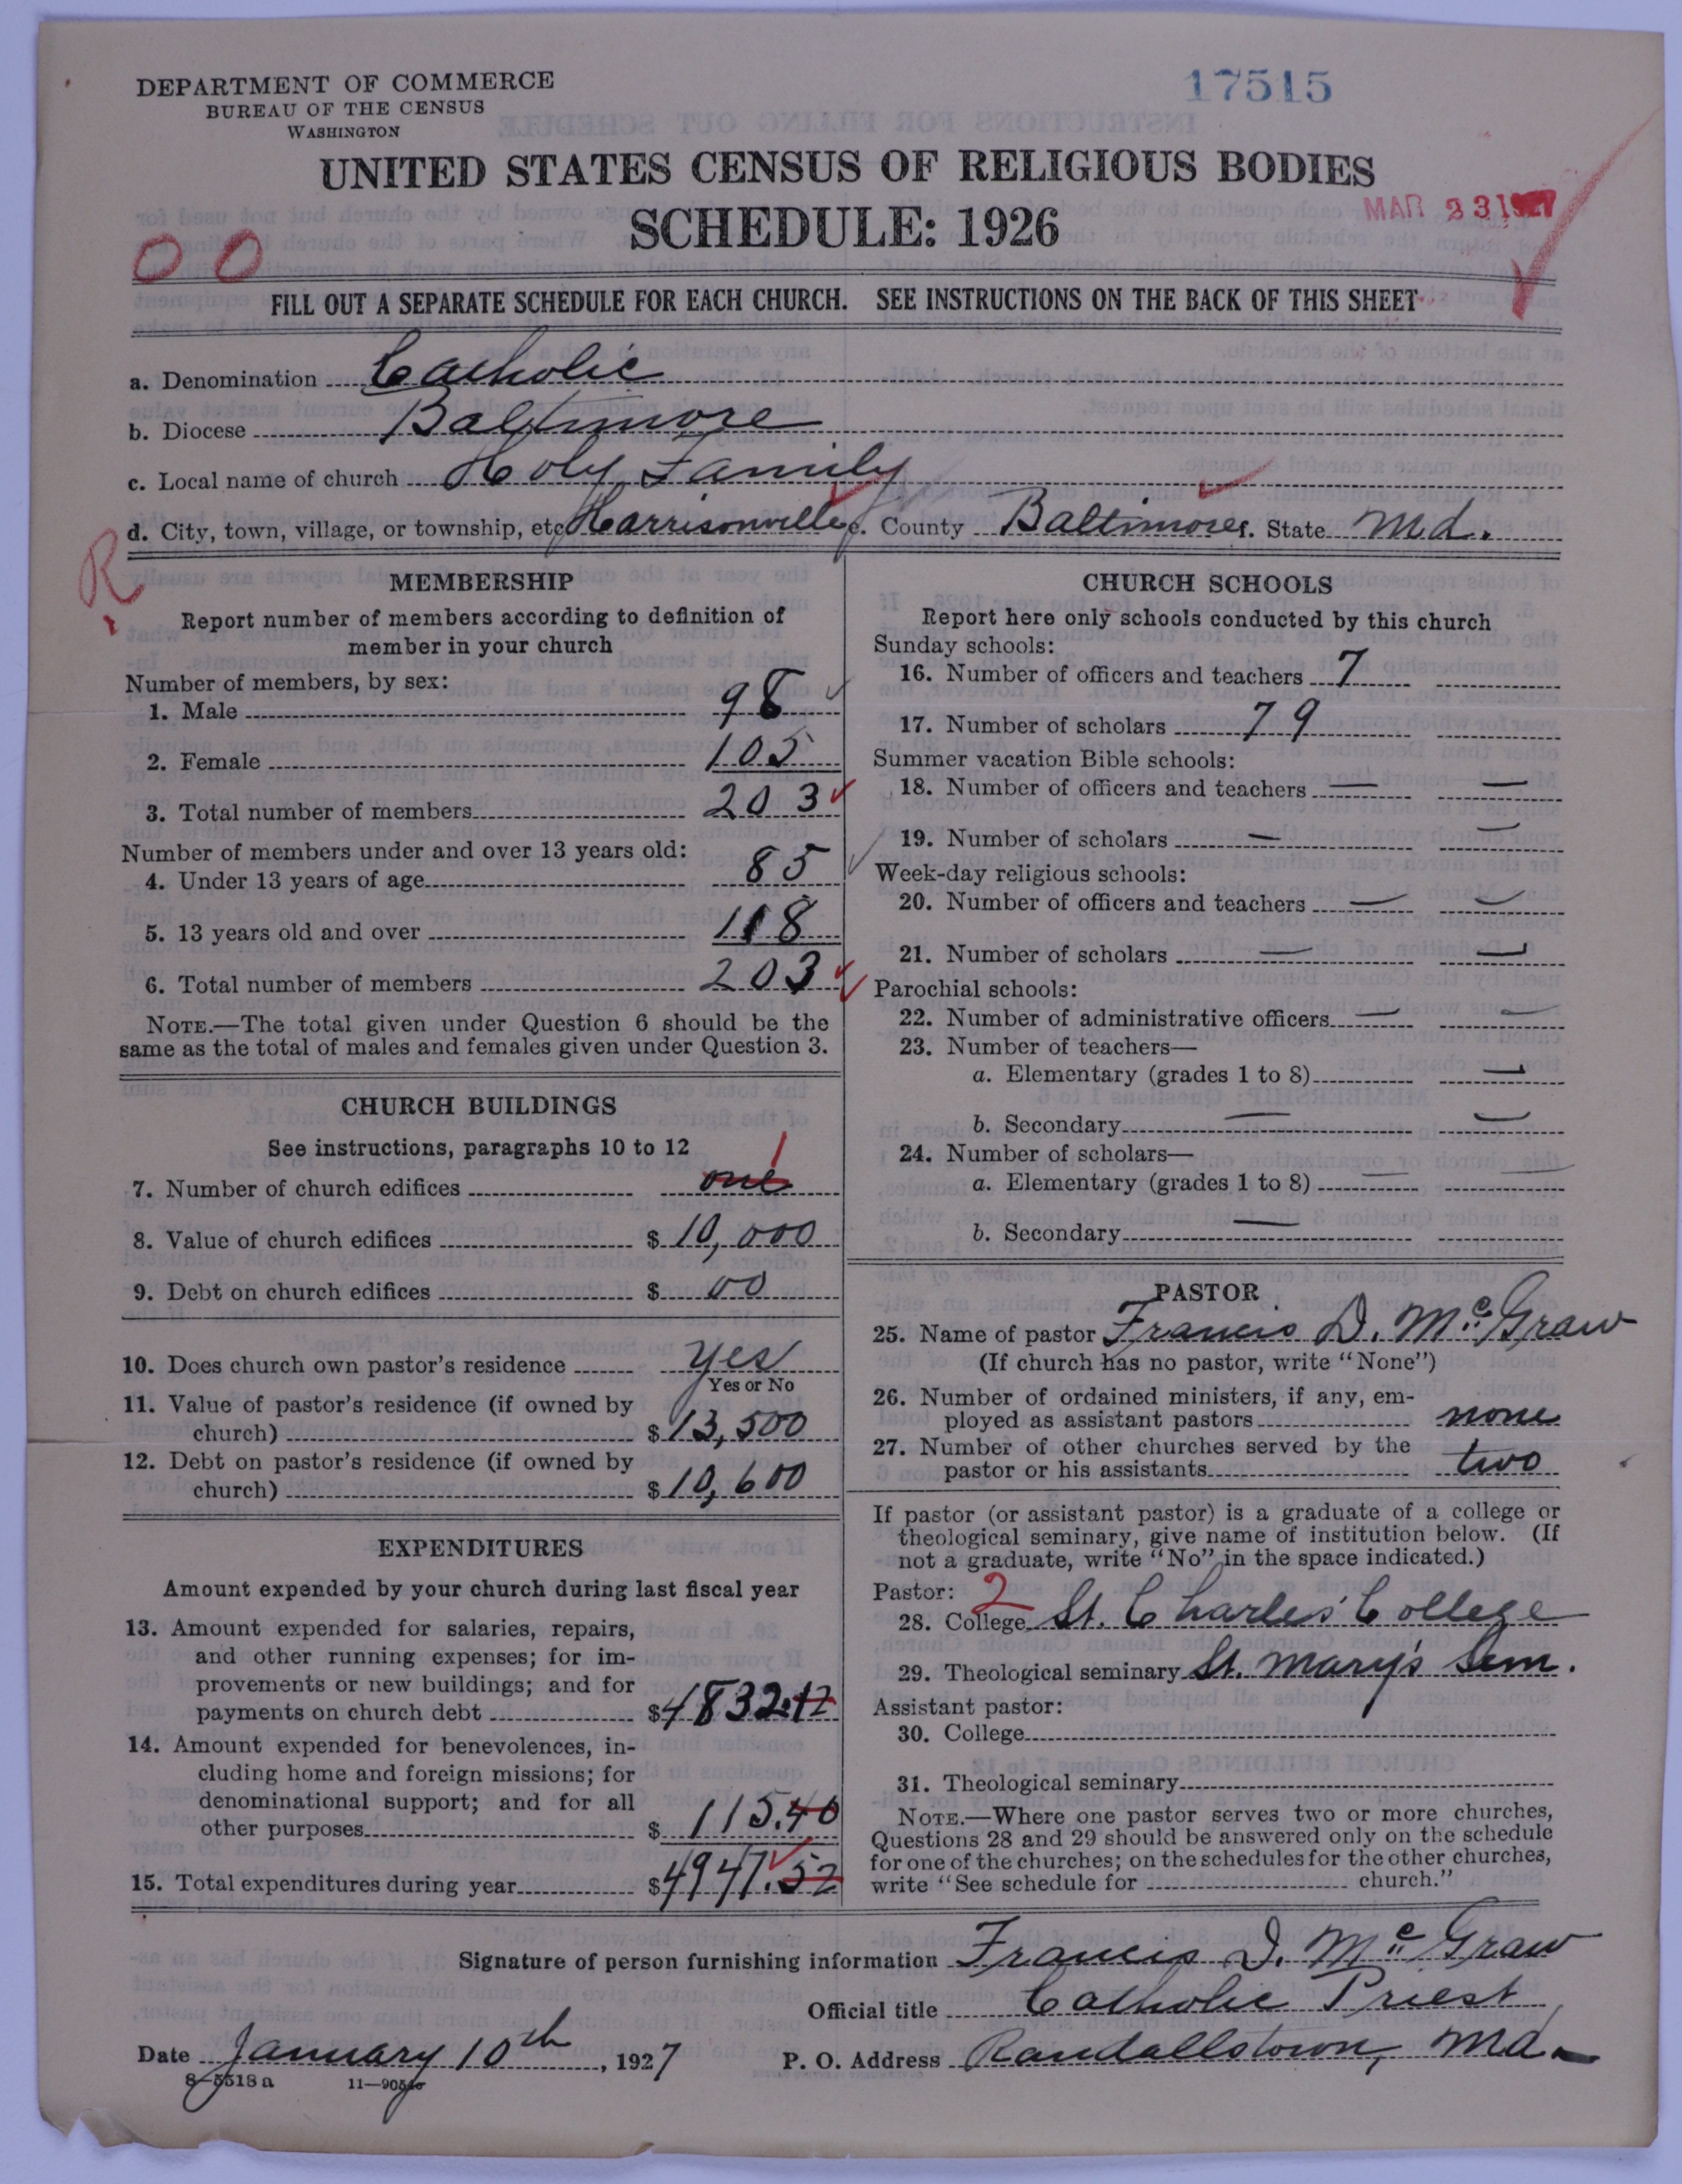 DEPARTMENT OF COMMERCE
BUREAU OF THE CENSUS
WASHINGTON
17515
UNITED STATES CENSUS OF RELIGIOUS BODIES
SCHEDULE: 1926
MAR 23 1927
00
FILL OUT A SEPARATE SCHEDULE FOR EACH CHURCH. SEE INSTRUCTIONS ON THE BACK OF THIS SHEET
a. Denomination Catholic
b. Diocese Baltimore
c. Local name of church Holy Family
d. City, town, village, or township, etc Harrisonville e. County Baltimore f. State Md.
R
MEMBERSHIP
Report number of members according to definition of
member in your church
Number of members, by sex:
1. Male 98
2. Female 105
3. Total number of members 203
Number of members under and over 13 years old:
4. Under 13 years of age 85
5. 13 years old and over 118
6. Total number of members 203
NOTE.—The total given under Question 6 should be the
same as the total of males and females given under Question 3.
CHURCH BUILDINGS
See instructions, paragraphs 10 to 12
1
7. Number of church edifices one
8. Value of church edifices $ 10,000
9. Debt on church edifices $ 00
10. Does church own pastor's residence yes
Yes or No
11. Value of pastor's residence (if owned by
church) $ 13,500
12. Debt on pastor's residence (if owned by
church) $ 10,600
EXPENDITURES
Amount expended by your church during last fiscal year
13. Amount expended for salaries, repairs,
and other running expenses; for im-
provements or new buildings; and for
payments on church debt $ 4832.12
14. Amount expended for benevolences, in-
cluding home and foreign missions; for
denominational support; and for all
other purposes $ 115.40
15. Total expenditures during year $ 4947.52
CHURCH SCHOOLS
Report here only schools conducted by this church
Sunday schools:
16. Number of officers and teachers 7
17. Number of scholars 79
Summer vacation Bible schools:
18. Number of officers and teachers — —
19. Number of scholars — —
Week-day religious schools:
20. Number of officers and teachers — —
21. Number of scholars — —
Parochial schools:
22. Number of administrative officers — —
23. Number of teachers—
a. Elementary (grades 1 to 8) —
b. Secondary — —
24. Number of scholars—
a. Elementary (grades 1 to 8) — —
b. Secondary —
PASTOR
25. Name of pastor Francis D. McGraw
(If church has no pastor, write "None")
26. Number of ordained ministers, if any, em-
ployed as assistant pastors none
27. Number of other churches served by the
pastor or his assistants two
If pastor (or assistant pastor) is a graduate of a college or
theological seminary, give name of institution below. (If
not a graduate, write "No" in the space indicated.)
Pastor: 2
28. College St. Charles' College
29. Theological seminary St. Mary's Sem.
Assistant pastor:
30. College
31. Theological seminary
NOTE.—Where one pastor serves two or more churches,
Questions 28 and 29 should be answered only on the schedule
for one of the churches; on the schedules for the other churches,
write "See schedule for church."
Signature of person furnishing information Francis D. McGraw
Official title Catholic Priest
Date January 10th, 1927 P. O. Address Randallstown, Md.
8-5518 a